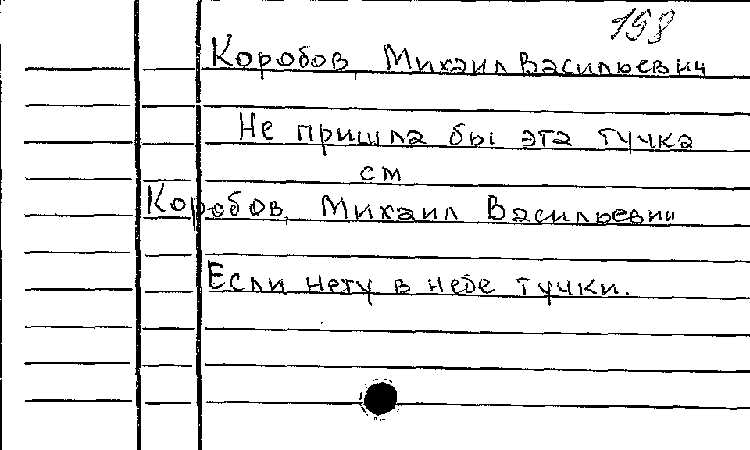 198
Коробов, Михаил Васильевич
Не пришла бы эта тучка
см
Коробов, Михаил Васильевич
Если нету в небе тучки.